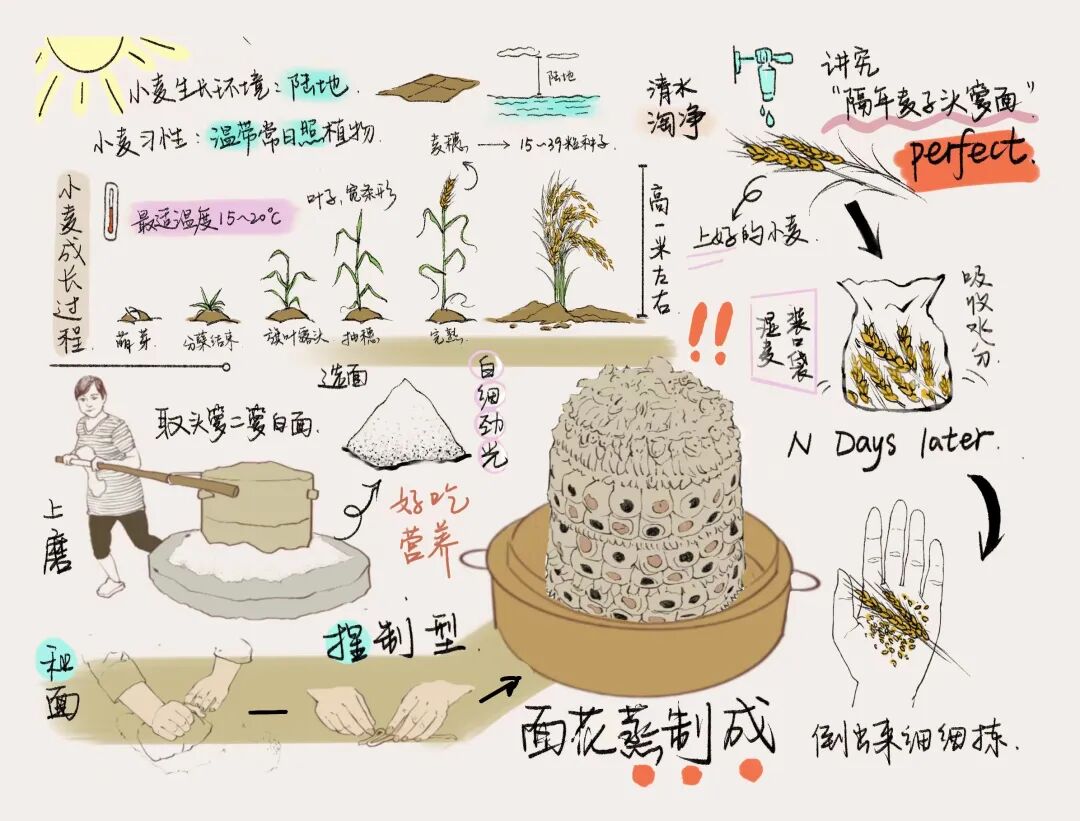 小麦生长环境：陆地.
小麦习性：温带常日照植物.
陆地
麦穗 → 15~39粒种子
小麦成长过程.
最适温度15~20℃
叶子，宽条形
萌芽.
分蘖结束
旗叶露头
抽穗.
完熟.
高一米左右
清水
淘净
讲究
“隔年麦子头箩面”
perfect.
上好的小麦.
湿麦
装口袋
吸收水分
!!
N Days later.
倒出来细细拣.
取头箩二箩白面.
上磨
选面
白细劲光
好吃
营养
和面
捏制型
面花蒸制成